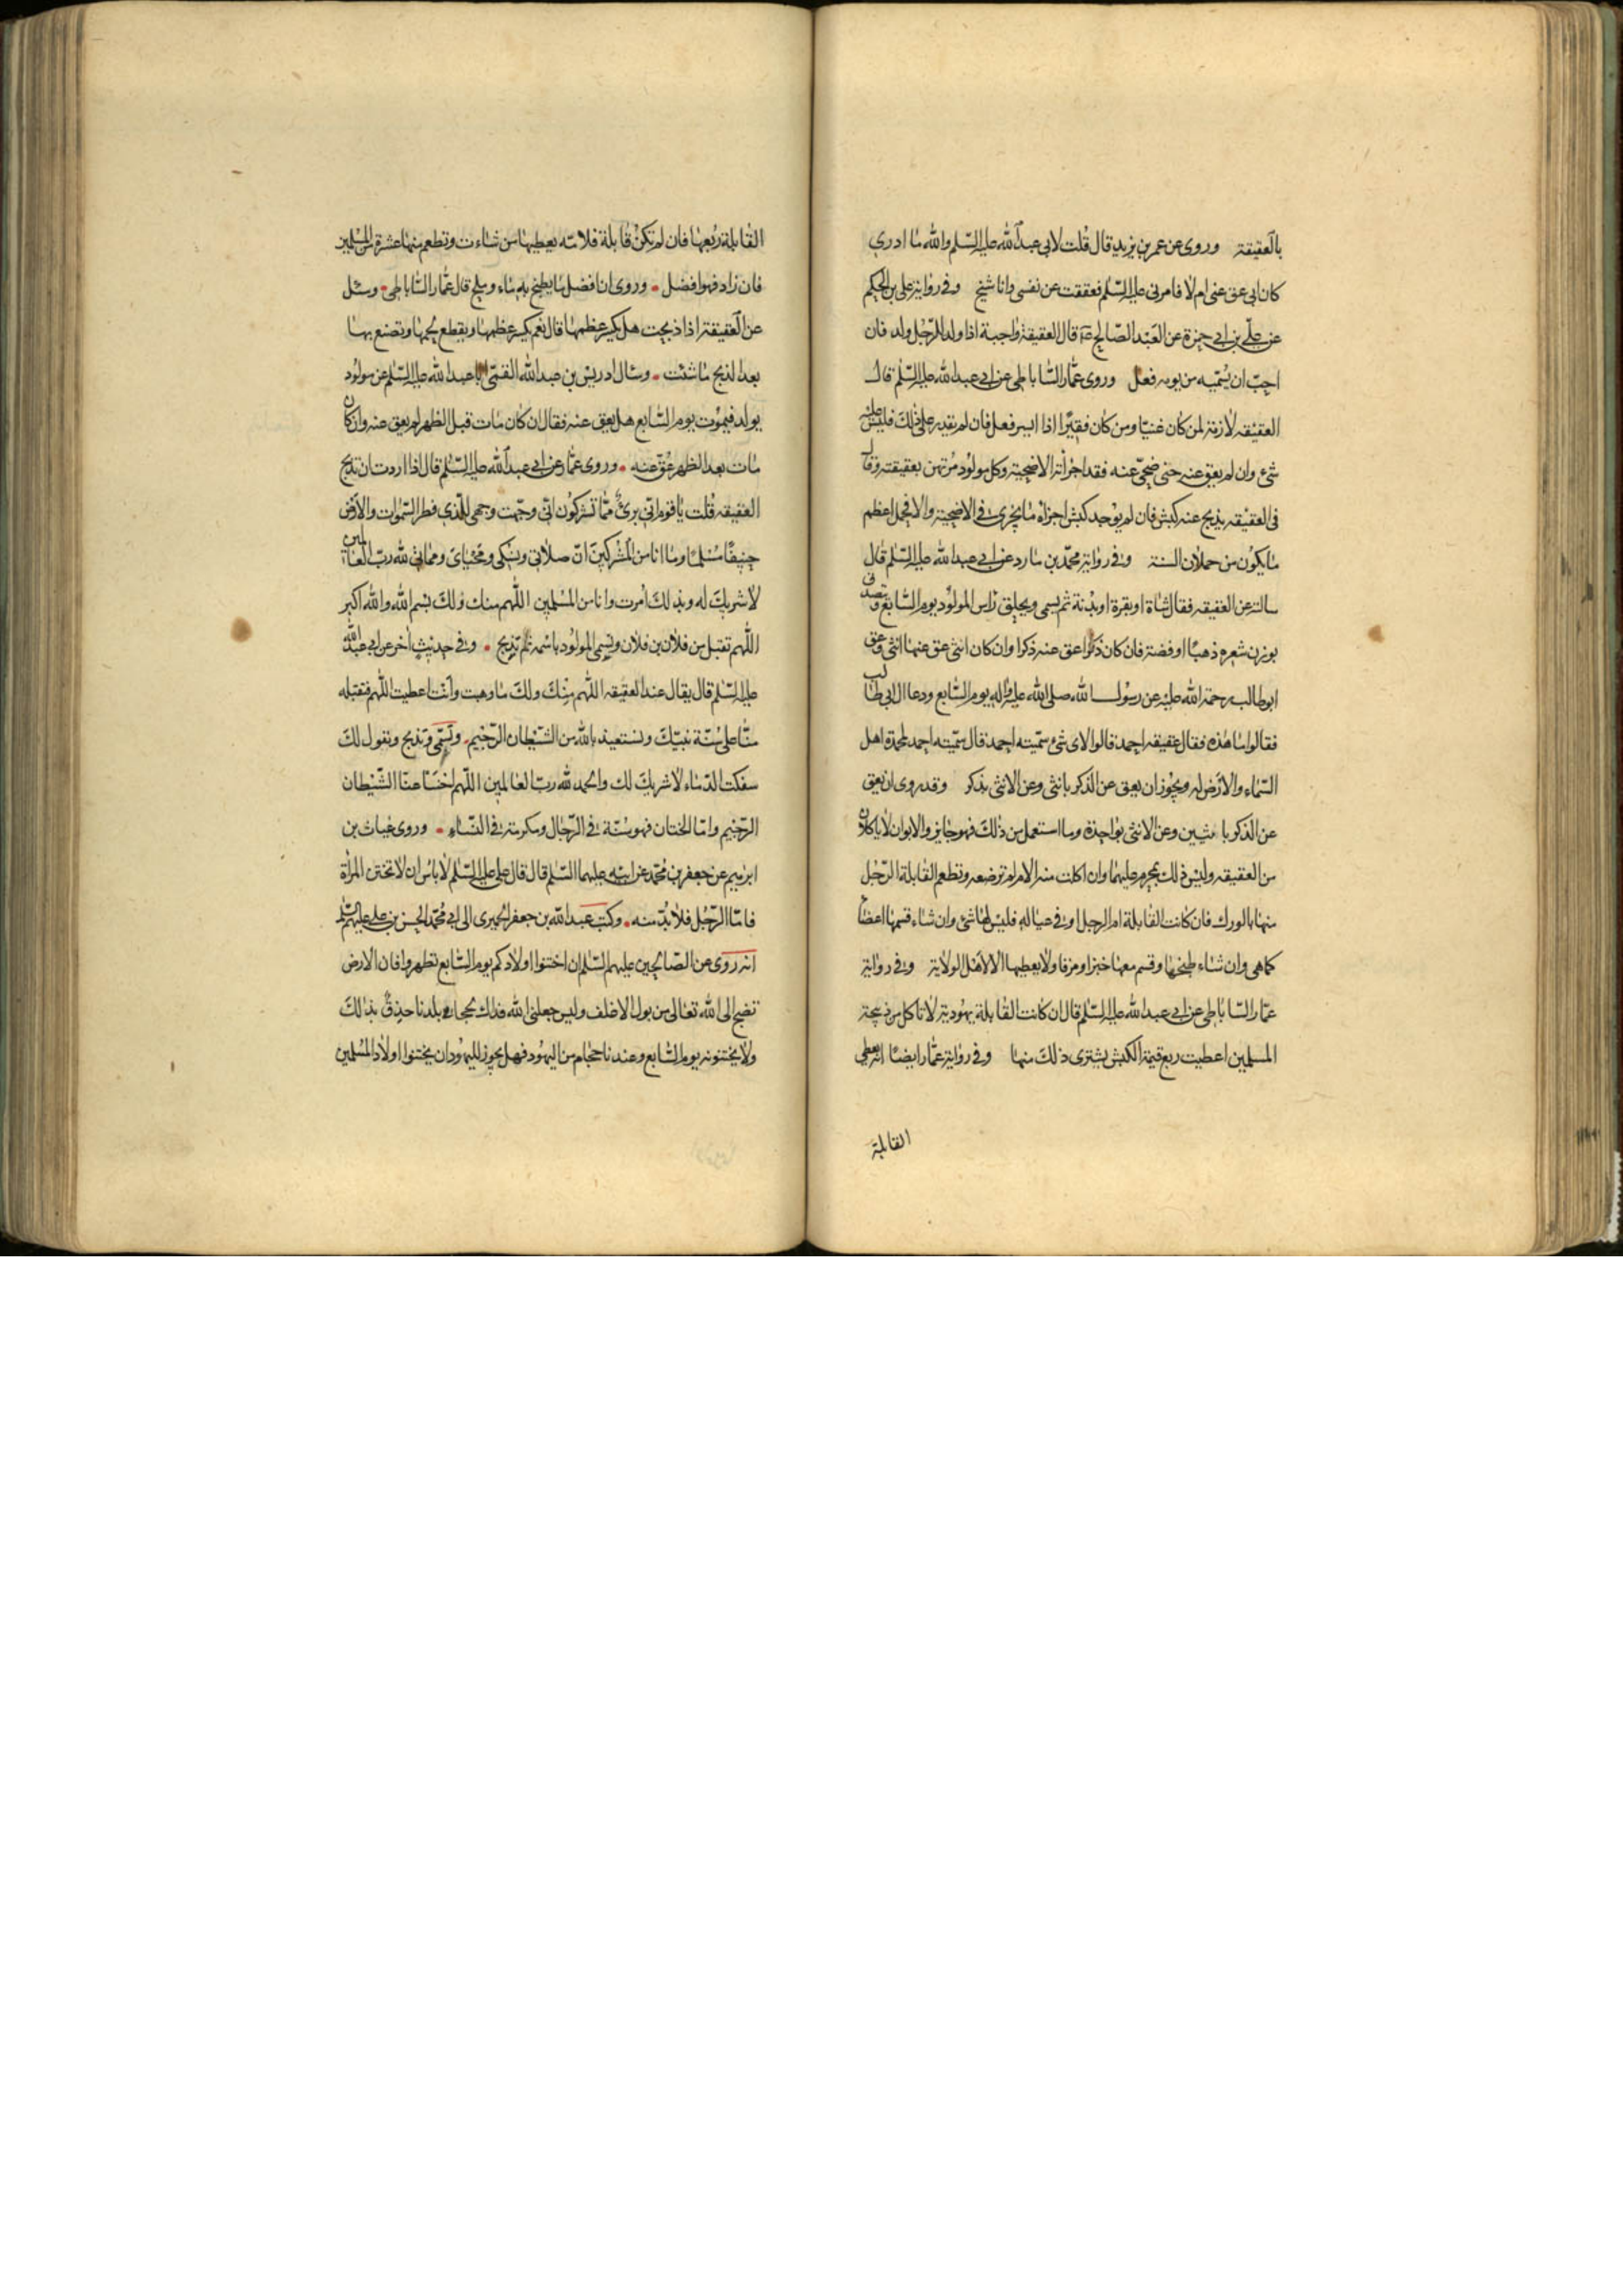 بالعقيقة وروى عن عمر بن يزيد قال قلت لابى عبد الله عليه السلم والله ما ادرى
كان ابى عق عنى ام لا فامرنى عليه السلم فعققت عن نفسى وانا شيخ وفى رواية على بن الحكم
عن على بن ابى حمزة عن العبد الصالح قال العقيقة واجبة اذا ولد للرجل ولد فان
احب ان يسميه من يومه فعل وروى عمار الساباطى عن ابى عبد الله عليه السلم قال
العقيقه لازمة لمن كان غنيا ومن كان فقيرا اذا ايسر فعل فان لم يقدر على ذلك فليس عليه
شئ وان لم يعق عنه حتى ضحى عنه فقد اجزأته الاضحية وكل مولود مرتهن بعقيقته وقال
فى العقيقه يذبح عنه كبش فان لم يوجد كبش اجزاه ما يجزى فى الاضحية والا فحمل اعظم
ما يكون من حملان السنة وفى رواية محمد بن مارد عن ابى عبد الله عليه السلم قال
سالته عن العقيقه فقال شاة او بقرة او بدنة ثم يسمى ويحلق راس المولود يوم السابع ويتصدق
بوزن شعره ذهبا او فضة فان كان ذكرا عق عنه ذكرا وان كان انثى عق عنها انثى وعق
ابو طالب رحمة الله عليه عن رسول الله صلى الله عليه واله يوم السابع ودعا ال ابى طالب
فقالوا ما هذه فقال عقيقه احمد قالوا لاى شئ سميته احمد قال سميته احمد لمحمدة اهل
السماء والارض له ويجوز ان يعق عن الذكر بانثى وعن الانثى بذكر وقد روى ان يعق
عن الذكر بانثيين وعن الانثى بواحدة وما استعمل من ذلك فهو جايز والابوان لا ياكلان
من العقيقه وليس ذلك بمحرم عليهما وان اكلت منه الام لم ترضعه وتطعم القابلة الرجل
منها بالورك فان كانت القابلة ام الرجل او فى عياله فليس لها شئ وان شاء قسمها اعضا
كما هى وان شاء طبخها وقسم معها خبزا ومرقا ولا يعطيها الا لاهل الولاية وفى رواية
عمار الساباطى عن ابى عبد الله عليه السلم قال ان كانت القابلة يهودية لا تاكل من ذبيحة
المسلمين اعطيت ربع قيمة الكبش يشترى ذلك منها وفى رواية عمار ايضا انه يعطى
القابلة
القابلة ربعها فان لم تكن قابلة فلامه يعطيها من شاءت وتطعم منها عشرة من المسلمين
فان زاد فهو افضل وروى ان افضل ما يطبخ به ماء وملح قال عمار الساباطى وسئل
عن العقيقة اذا ذبحت هل يكسر عظمها قال نعم يكسر عظمها ويقطع لحمها وتصنع بها
بعد الذبح ما شئت وسئال ادريس بن عبد الله القمى ابا عبد الله عليه السلم عن مولود
يولد فيموت يوم السابع هل يعق عنه فقال ان كان مات قبل الظهر لم يعق عنه وان كان
مات بعد الظهر عق عنه وروى عمار عن ابى عبد الله عليه السلم قال اذا اردت ان تذبح
العقيقه قلت يا قوم انى برئ مما تشركون انى وجهت وجهى للذى فطر السموات والارض
حنيفا مسلما وما انا من المشركين ان صلاتى ونسكى ومحياى ومماتى لله رب العالمين
لا شريك له وبذلك امرت وانا من المسلمين اللهم منك ولك بسم الله والله اكبر
اللهم تقبل من فلان بن فلان وتسمى المولود باسمه ثم تذبح وفى حديث اخر عن ابى عبد الله
عليه السلم قال يقال عند العقيقه اللهم منك ولك ما وهبت وانت اعطيت اللهم فتقبله
منا على سنة نبيك ونستعيذ بالله من الشيطان الرجيم وتسمى وتذبح وتقول لك
سفكت الدماء لا شريك لك والحمد لله رب العالمين اللهم اخسا عنا الشيطان
الرجيم واما الختان فهو سنة فى الرجال ومكرمة فى النساء وروى غياث بن
ابرهيم عن جعفر بن محمد عن ابيه عليهما السلم قال قال على عليه السلم لا باس ان لا تختتن المرأة
فاما الرجل فلا بد منه وكتب عبد الله بن جعفر الحميرى الى ابى محمد الحسن بن على عليهم السلم
انه روى عن الصالحين عليهم السلم ان اختنوا اولادكم يوم السابع تطهروا فان الارض
تضج الى الله تعالى من بول الاغلف وليس جعلنى الله فداك لحجامى بلدنا حذق بذلك
ولا يختنونه يوم السابع وعندنا حجام من اليهود فهل يجوز لليهود ان يختنوا اولاد المسلمين